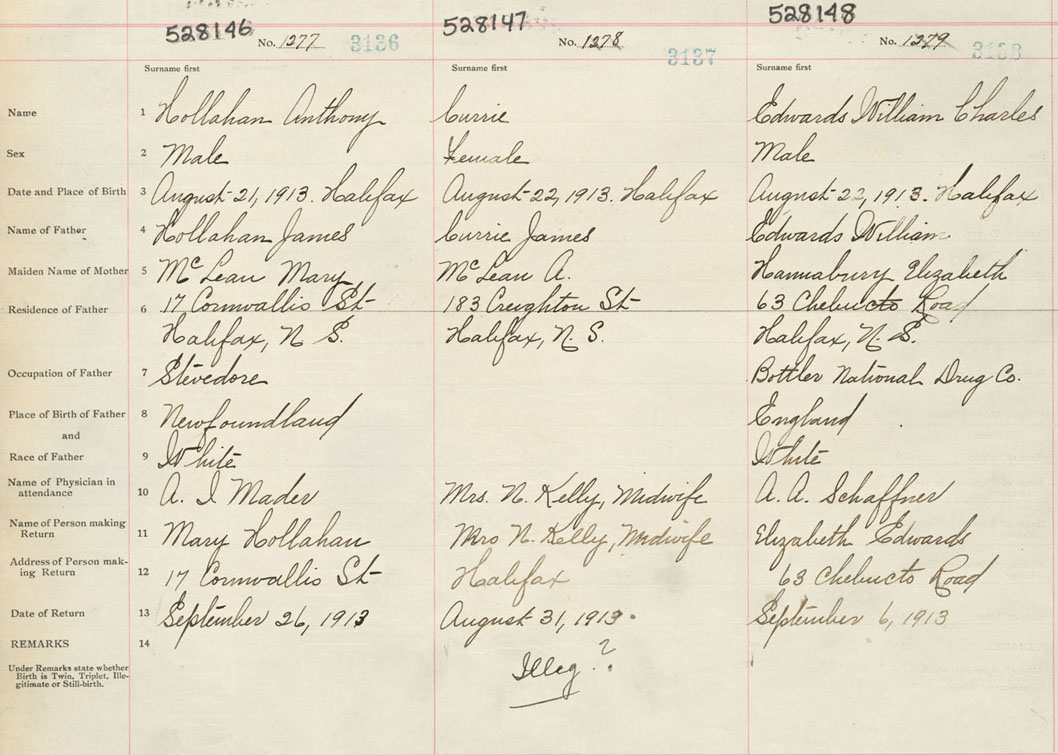 528146 528147 528148
No. 1277 3136 No. 1278 3137 No. 1279 3138
Surname first Surname first Surname first
Name 1 Hollahan Anthony Currie Edwards William Charles
Sex 2 Male Female Male
Date and Place of Birth 3 August 21, 1913. Halifax August 22, 1913. Halifax August 22, 1913. Halifax
Name of Father 4 Hollahan James Currie James Edwards William
Maiden Name of Mother 5 McLean Mary McLean A. Hannabury Elizabeth
Residence of Father 6 17 Cornwallis St 183 Creighton St 63 Chebucto Road
Halifax, N S. Halifax, N. S. Halifax, N. S.
Occupation of Father 7 Stevedore Bottler National Drug Co.
Place of Birth of Father 8 Newfoundland England
and
Race of Father 9 White White
Name of Physician in
attendance 10 A. I Mader Mrs. N. Kelly, Midwife A. A. Schaffner
Name of Person making
Return 11 Mary Hollahan Mrs N. Kelly, Midwife Elizabeth Edwards
Address of Person mak-
ing Return 12 17 Cornwallis St Halifax 63 Chebucto Road
Date of Return 13 September 26, 1913 August 31, 1913. September 6, 1913
REMARKS 14
Under Remarks state whether
Birth is Twin, Triplet, Ille-
gitimate or Still-birth.
Illeg.?